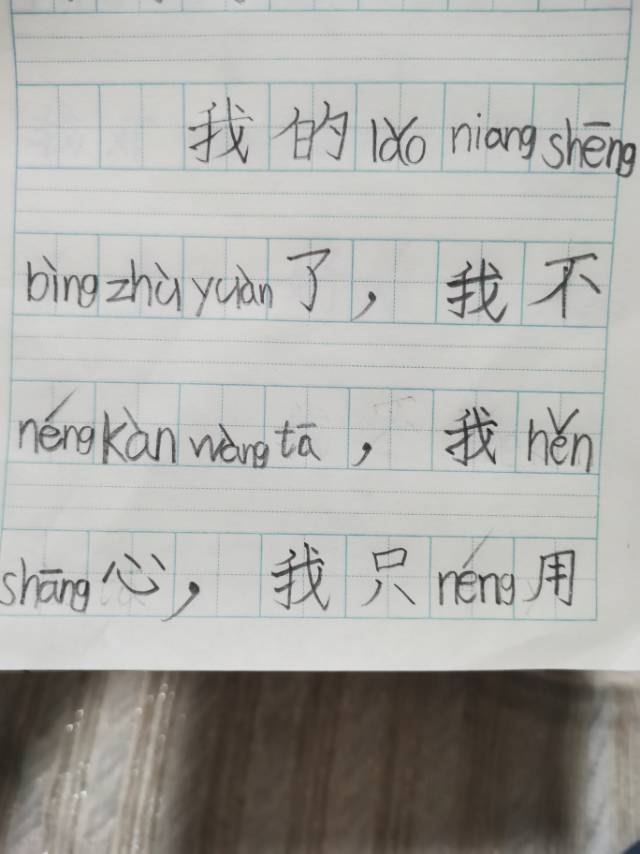 我的lǎo niang shēng
bìng zhù yuàn了，我不
néng kàn wàng tā，我hěn
shāng心，我只néng用